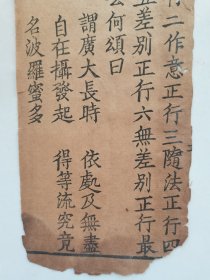 行二作意正行三隨法正行四
五差別正行六無差別正行最
云何頌曰
謂廣大長時　依處及無盡
自在攝發起　得等流究竟
名波羅蜜多